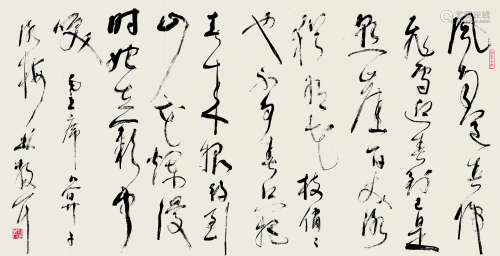 風雨送春归
飛雪迎春到已是
懸崖百丈冰
犹有花枝俏〻
也不争春只把
春来报待到
山花爛漫
时她在丛中
笑 毛主席卜算子
咏梅 林散耳